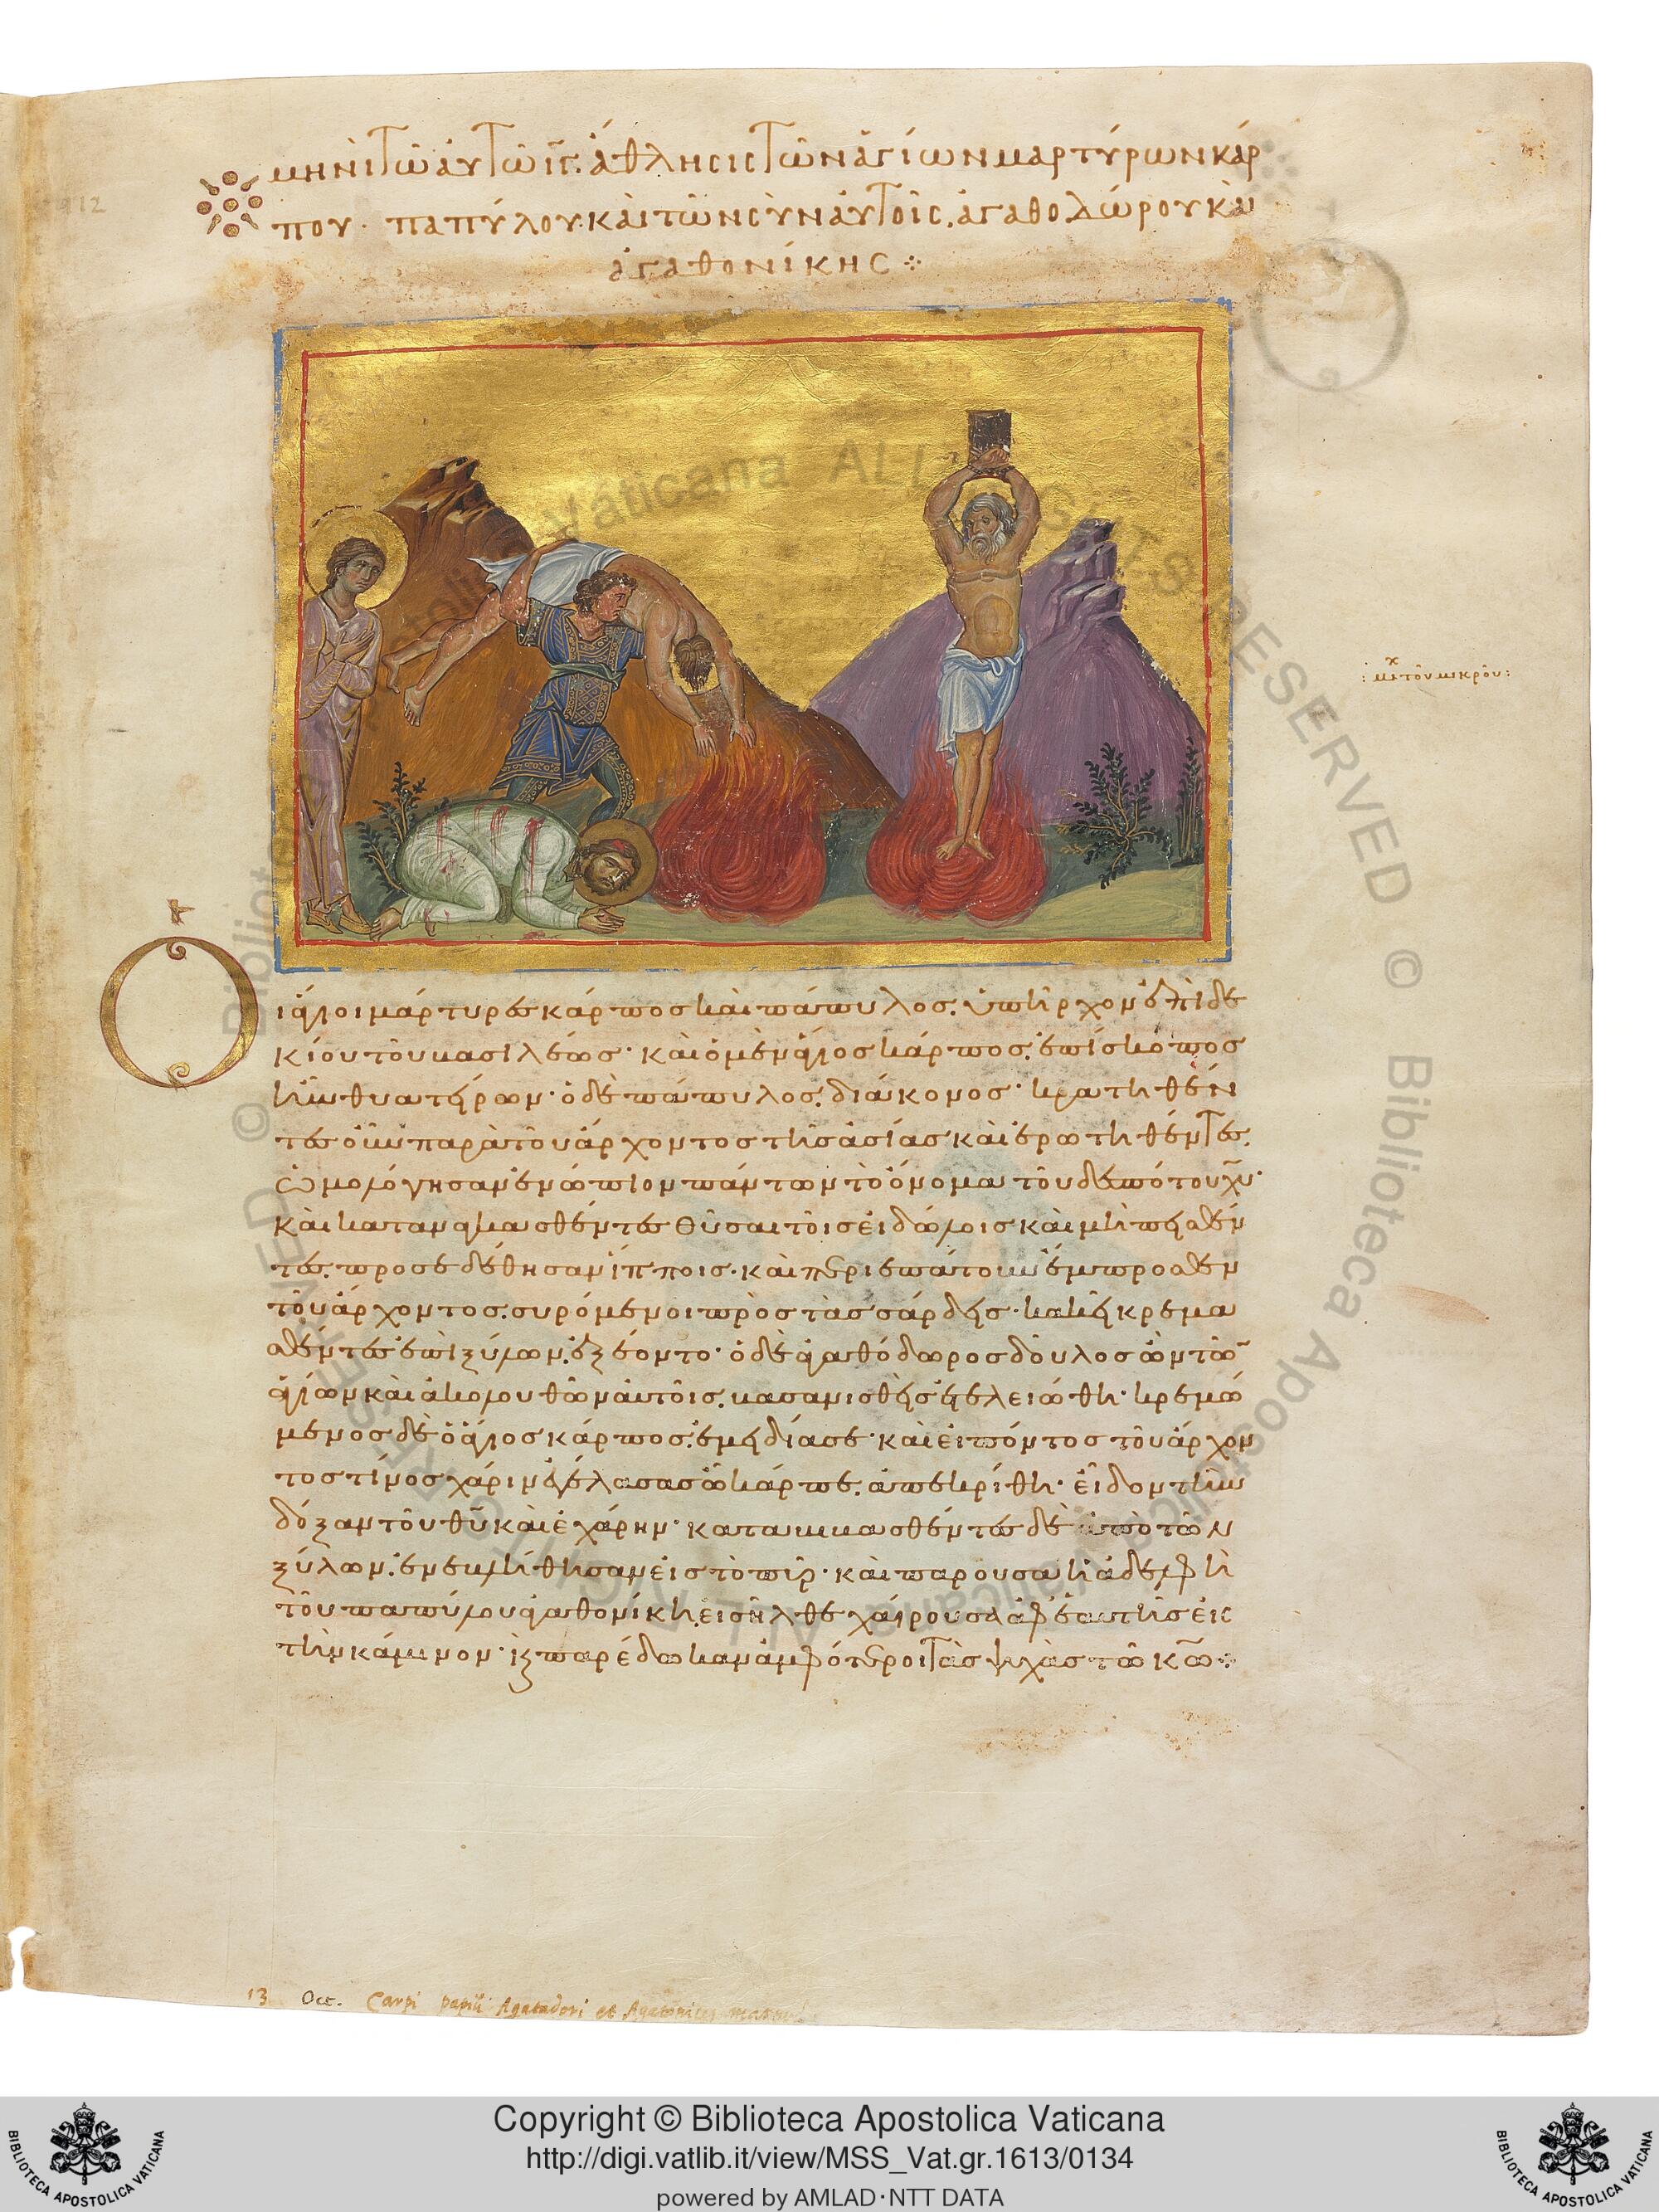 μηνὶ τῶ αὐτῶ ιγ. ἄθλησις τῶν ἁγίων μαρτύρων κάρ
που. παπύλου. καὶ τῶν σὺν αὐτοῖς. ἀγαθοδώρου καὶ
ἀγαθονίκης
: τοῦ μικροῦ :
Οἱ ἅγιοι μάρτυρες κάρπος καὶ πάπυλος. ὑπῆρχον ἐπὶ δε
κίου τοῦ βασιλέως· καὶ ὁ μὲν ἅγιος κάρπος. ἐπίσκοπος
ἦν θυατείρων· ὁ δὲ πάπυλος. διάκονος· κρατηθέν
τες οὖν παρὰ τοῦ ἄρχοντος τῆς ἀσίας καὶ ἐρωτηθέντες.
ὡμολόγησαν ἐνώπιον πάντων τὸ ὄνομα τοῦ δεσπότου χυ·
καὶ καταναγκασθέντες θῦσαι τοῖς εἰδώλοις καὶ μὴ πεισθέν
τες. προσεδέθησαν ἵπποις· καὶ περιεπάτουν ἔμπροσθεν
τοῦ ἄρχοντος. συρόμενοι πρὸς τὰς σάρδεις· κακεῖ κρεμα
σθέντες ἐπὶ ξύλων. ἐξέοντο· ὁ δὲ ἀγαθόδωρος δοῦλος ὢν τῶν
ἁγίων καὶ ἀκολουθῶν αὐτοῖς. βασανισθεὶς ἐτελειώθη· κρεμώ
μενος δὲ ὁ ἅγιος κάρπος. ἐμειδίασε· καὶ εἰπόντος τοῦ ἄρχον
τος τίνος χάριν ἐγέλασας ὦ κάρπε. ἀπεκρίθη· εἶδον τὴν
δόξαν τοῦ θυ καὶ ἐχάρην· καταβιβασθέντες δὲ ἀπὸ τῶν
ξύλων. ἐνεβλήθησαν εἰς τὸ πῦρ· καὶ παροῦσα ἡ ἀδελφὴ
τοῦ παπύλου ἀγαθονίκη. εἰσῆλθε χαίρουσα ἀφ' ἑαυτῆς εἰς
τὴν κάμινον· καὶ παρέδωκαν ἀμφότεροι τὰς ψυχὰς τῶ κω
13 Oct. Carpi papili Agatadori et Agatonices
Copyright © Biblioteca Apostolica Vaticana
http://digi.vatlib.it/view/MSS_Vat.gr.1613/0134
powered by AMLAD·NTT DATA
BIBLIOTECA APOSTOLICA VATICANA
BIBLIOTECA APOSTOLICA VATICANA